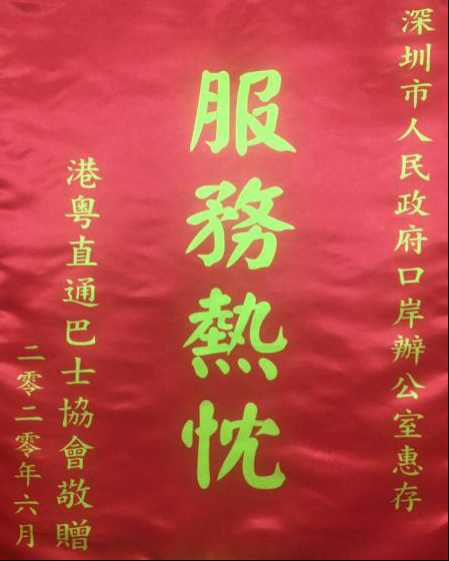 深圳市人民政府口岸辦公室惠存
服務熱忱
港粵直通巴士協會敬贈
二零二零年六月